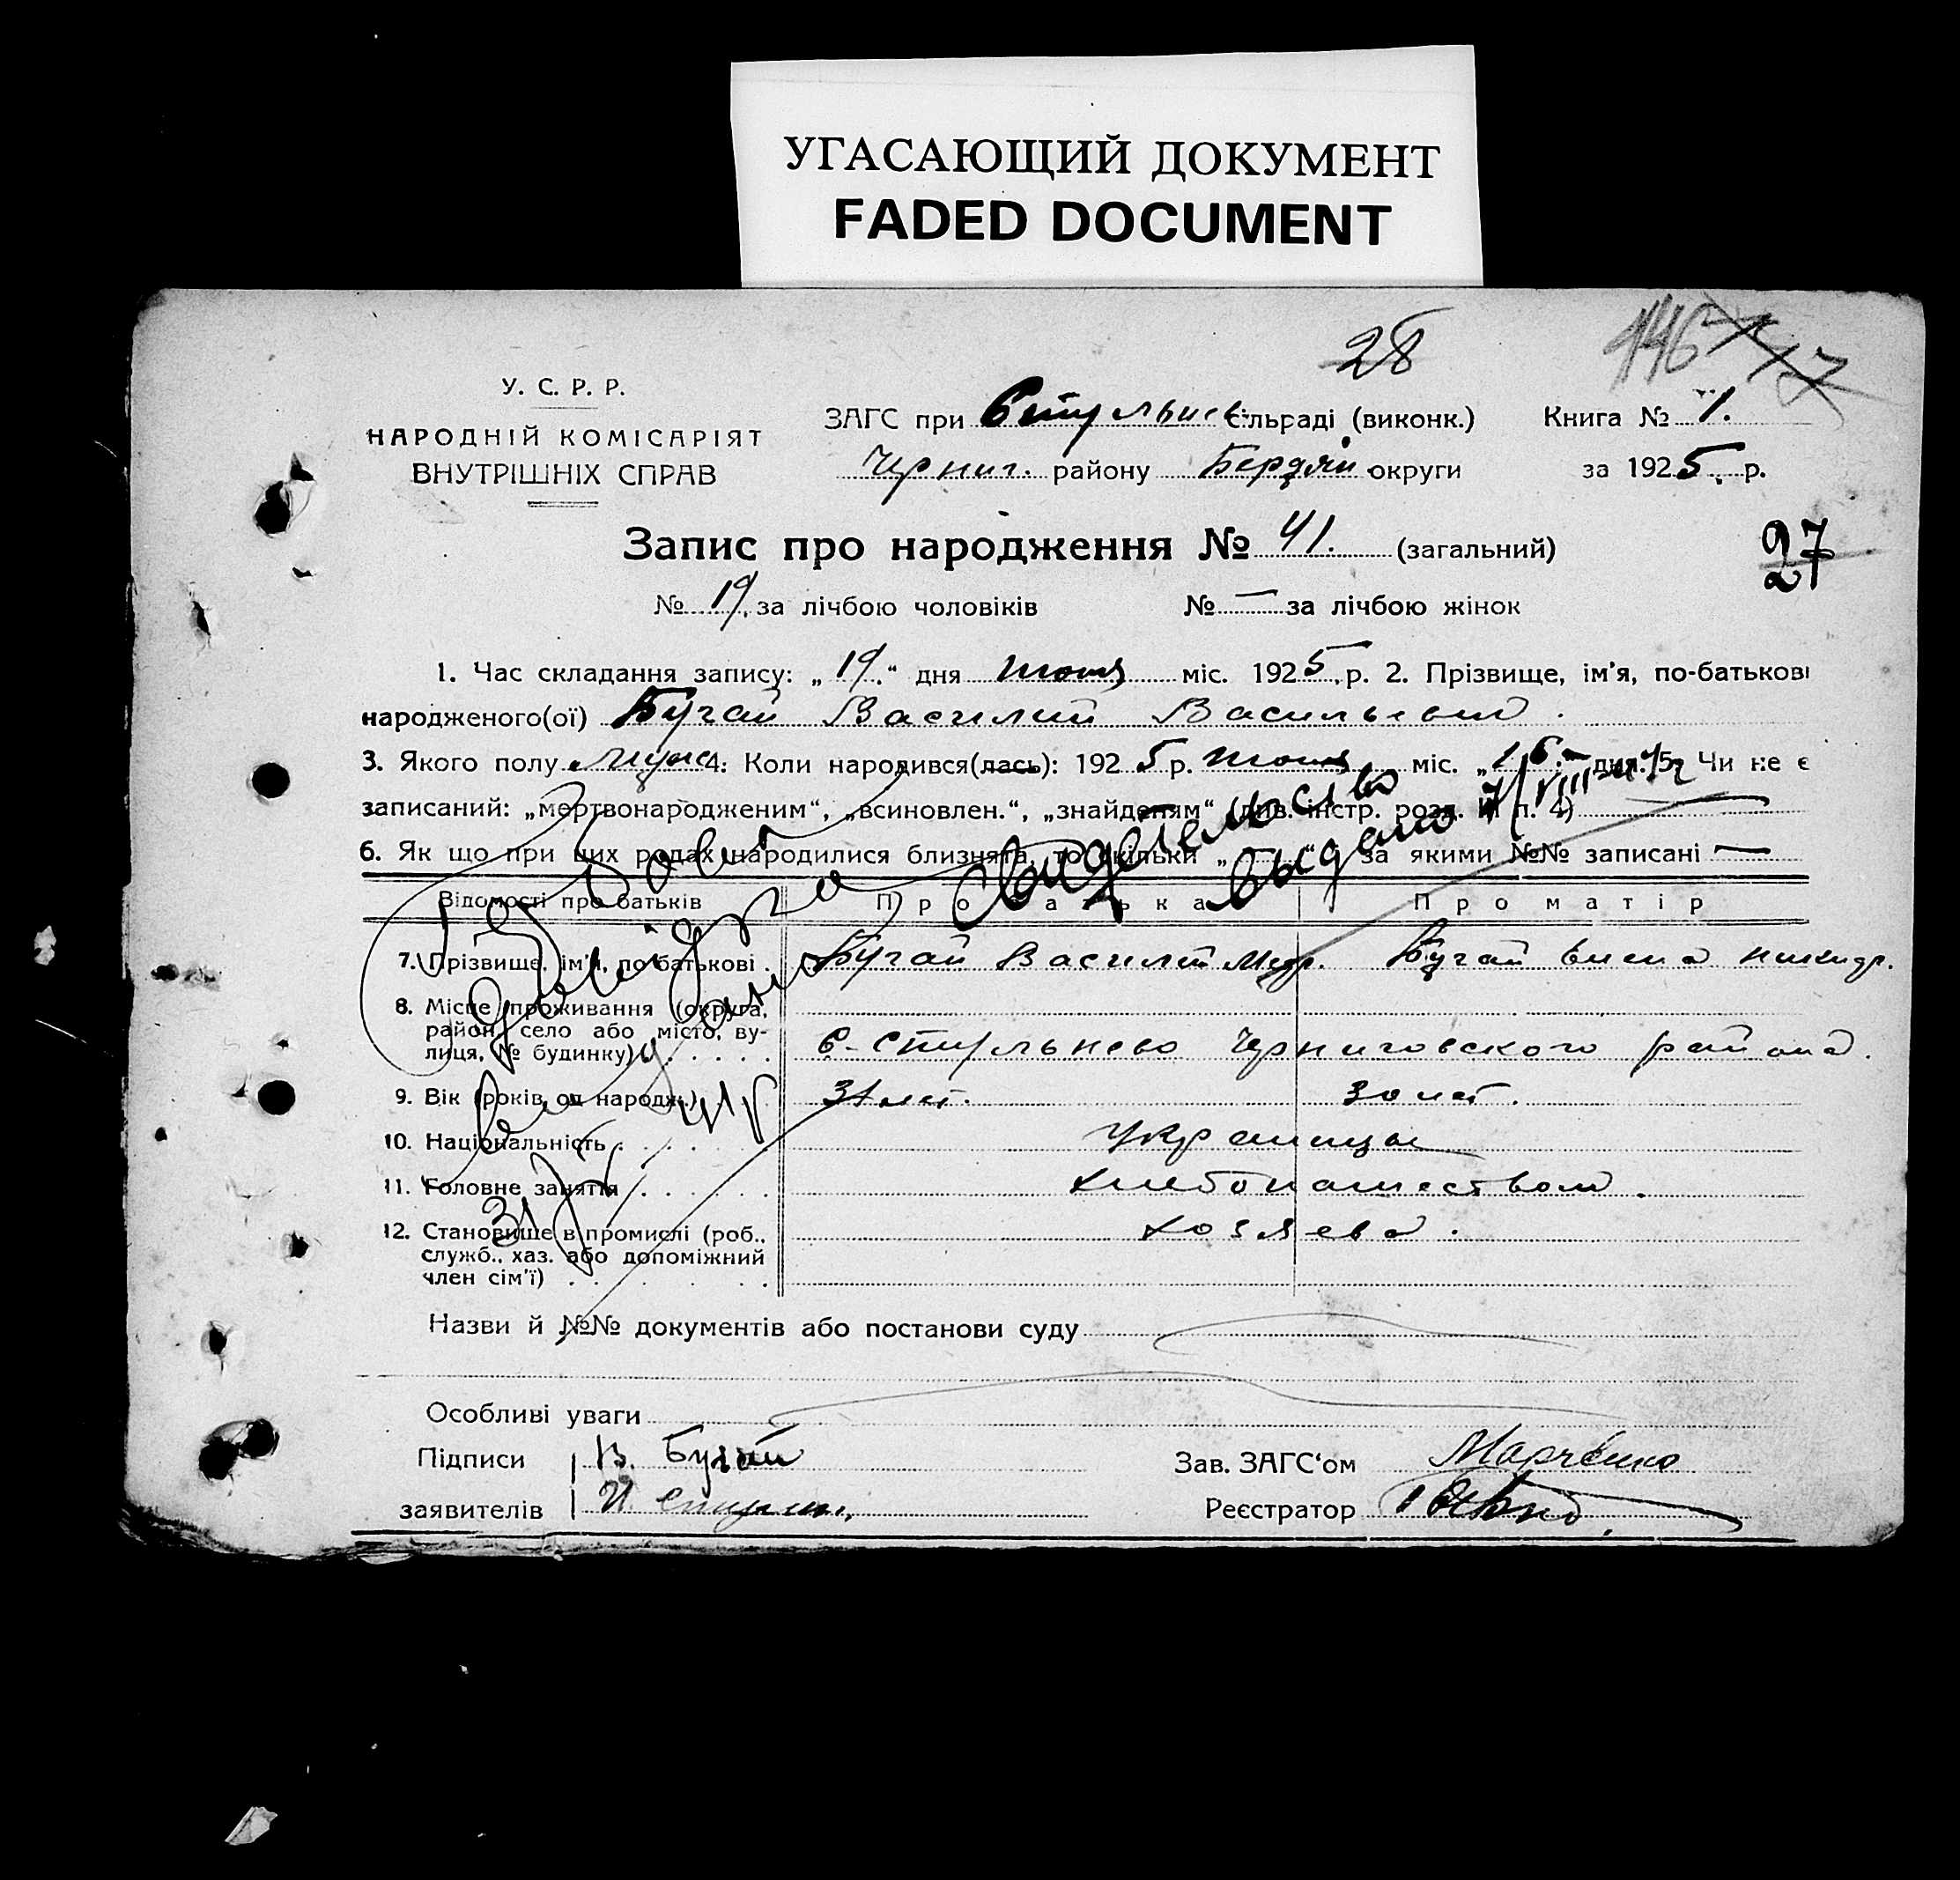 УГАСАЮЩИЙ ДОКУМЕНТ
FADED DOCUMENT
28
146
17
У. С. Р. Р.
НАРОДНІЙ КОМІСАРІЯТ
ВНУТРІШНІХ СПРАВ
ЗАГС при Стульнев. сільраді (виконк.) Книга № 1.
Черниг. району Бердян округи за 1925 р.
Запис про народження № 41. (загальний)
27
№ 19 за лічбою чоловіків № — за лічбою жінок
1. Час складання запису: „19“ дня міс. 1925 р. 2. Прізвище, ім'я, по-батькові
народженого(ої) Бугай Василий Васильевич
3. Якого полу муж 4. Коли народився(лась): 1925 р. міс. „16“ дня. 5. Чи не є
записаний: „мертвонародженим“, „всиновлен.“, „знайденям“ (див. інстр. розд. II п. 4) —
6. Як що при цих родах народилися близнята, то скільки „ “ за якими №№ записані —
Свидетельство
выдано
Довідка
видана
31/
41р
Відомості про батьків Про батька Про матір
7. Прізвище, ім'я, по-батькові . Бугай Василий Бугай Никидр.
8. Місце проживання (округа,
район, село або місто, ву-
лиця, № будинку) . . . . . С-Стульнево Черниговского района.
9. Вік (років од народж.) 31 лет. 30 лет.
10. Національність . . . . . Украинцы
11. Головне заняття . . . . . хлебопашеством.
12. Становище в промислі (роб., хозяева.
служб., хаз. або допоміжний
член сім'ї) . . . . .
Назви й №№ документів або постанови суду
Особливі уваги
Підписи В. Бугай Зав. ЗАГС'ом Марченко
заявителів И Реєстратор